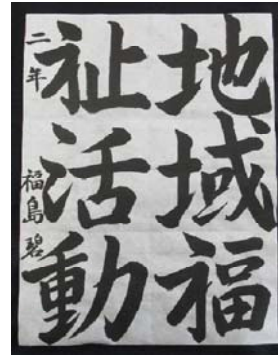 地域福
祉活動
二年 福島碧